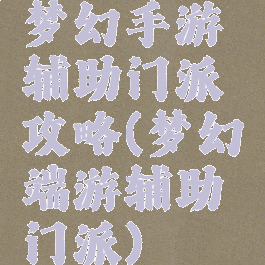 梦幻手游
辅助门派
攻略(梦幻
端游辅助
门派)